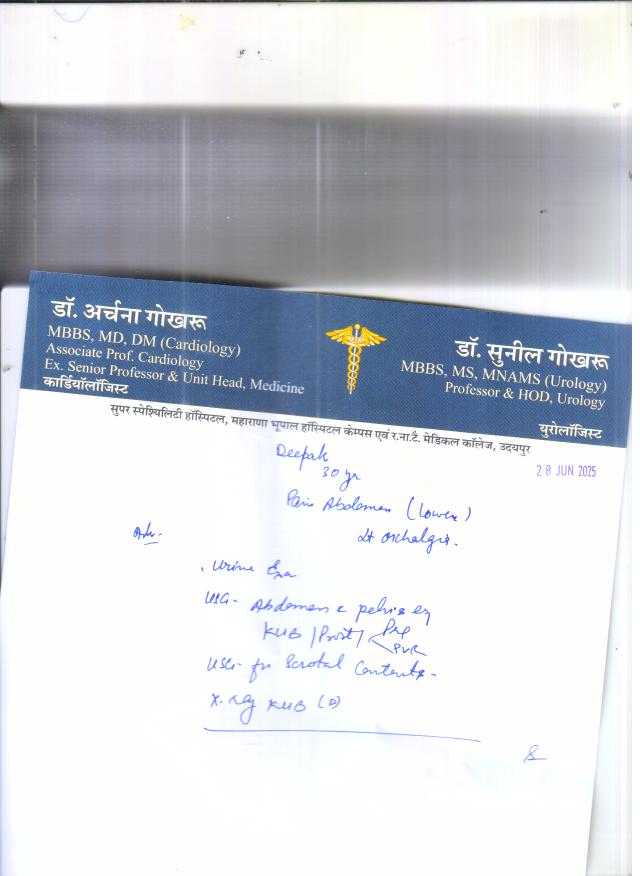 डॉ. अर्चना गोखरू
MBBS, MD, DM (Cardiology)
Associate Prof. Cardiology
Ex. Senior Professor & Unit Head, Medicine
कार्डियॉलॉजिस्ट
डॉ. सुनील गोखरू
MBBS, MS, MNAMS (Urology)
Professor & HOD, Urology
युरोलॉजिस्ट
सुपर स्पेश्यिलिटी हॉस्पिटल, महाराणा भूपाल हॉस्पिटल केम्पस एवं र.ना.टै. मेडिकल कॉलेज, उदयपुर
28 JUN 2025
Deepak
30 yr
Pain Abdomen (Lower)
Lt orchalgia.
Adv.
Urine
USG- Abdomen c pelvis
KUB / Prost / Pre
PVR
USG- for Scrotal Contents-
X-ray KUB (D)